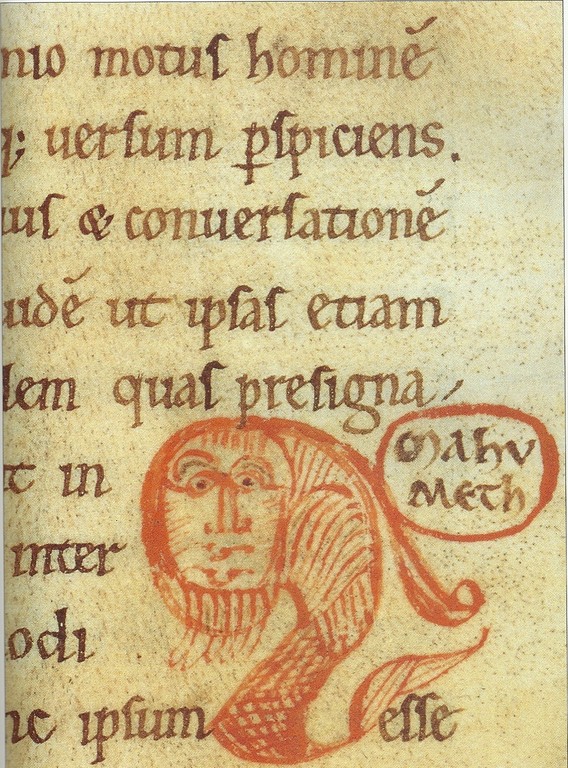 nio motus hominē
q; uersum ꝑspiciens.
uis & conuersationē
udē ut ipsas etiam
lem quas presigna
t in
inter
odi
nc ipsum esse
MAHU
METH